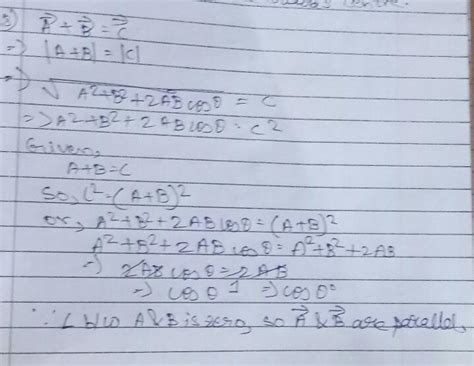 3) A⃗ + B⃗ = C⃗
=> |A+B| = |C|
=> √A²+B²+2ABcosθ = C
=> A²+B²+2ABcosθ = C²
Given,
A+B=C
So, C²=(A+B)²
or, A²+B²+2ABcosθ=(A+B)²
A²+B²+2ABcosθ=A²+B²+2AB
=> 2ABcosθ=2AB
=> cosθ 1 => cos0°
∵ ∠ b/w A&B is zero, so A⃗ & B⃗ are parallel.